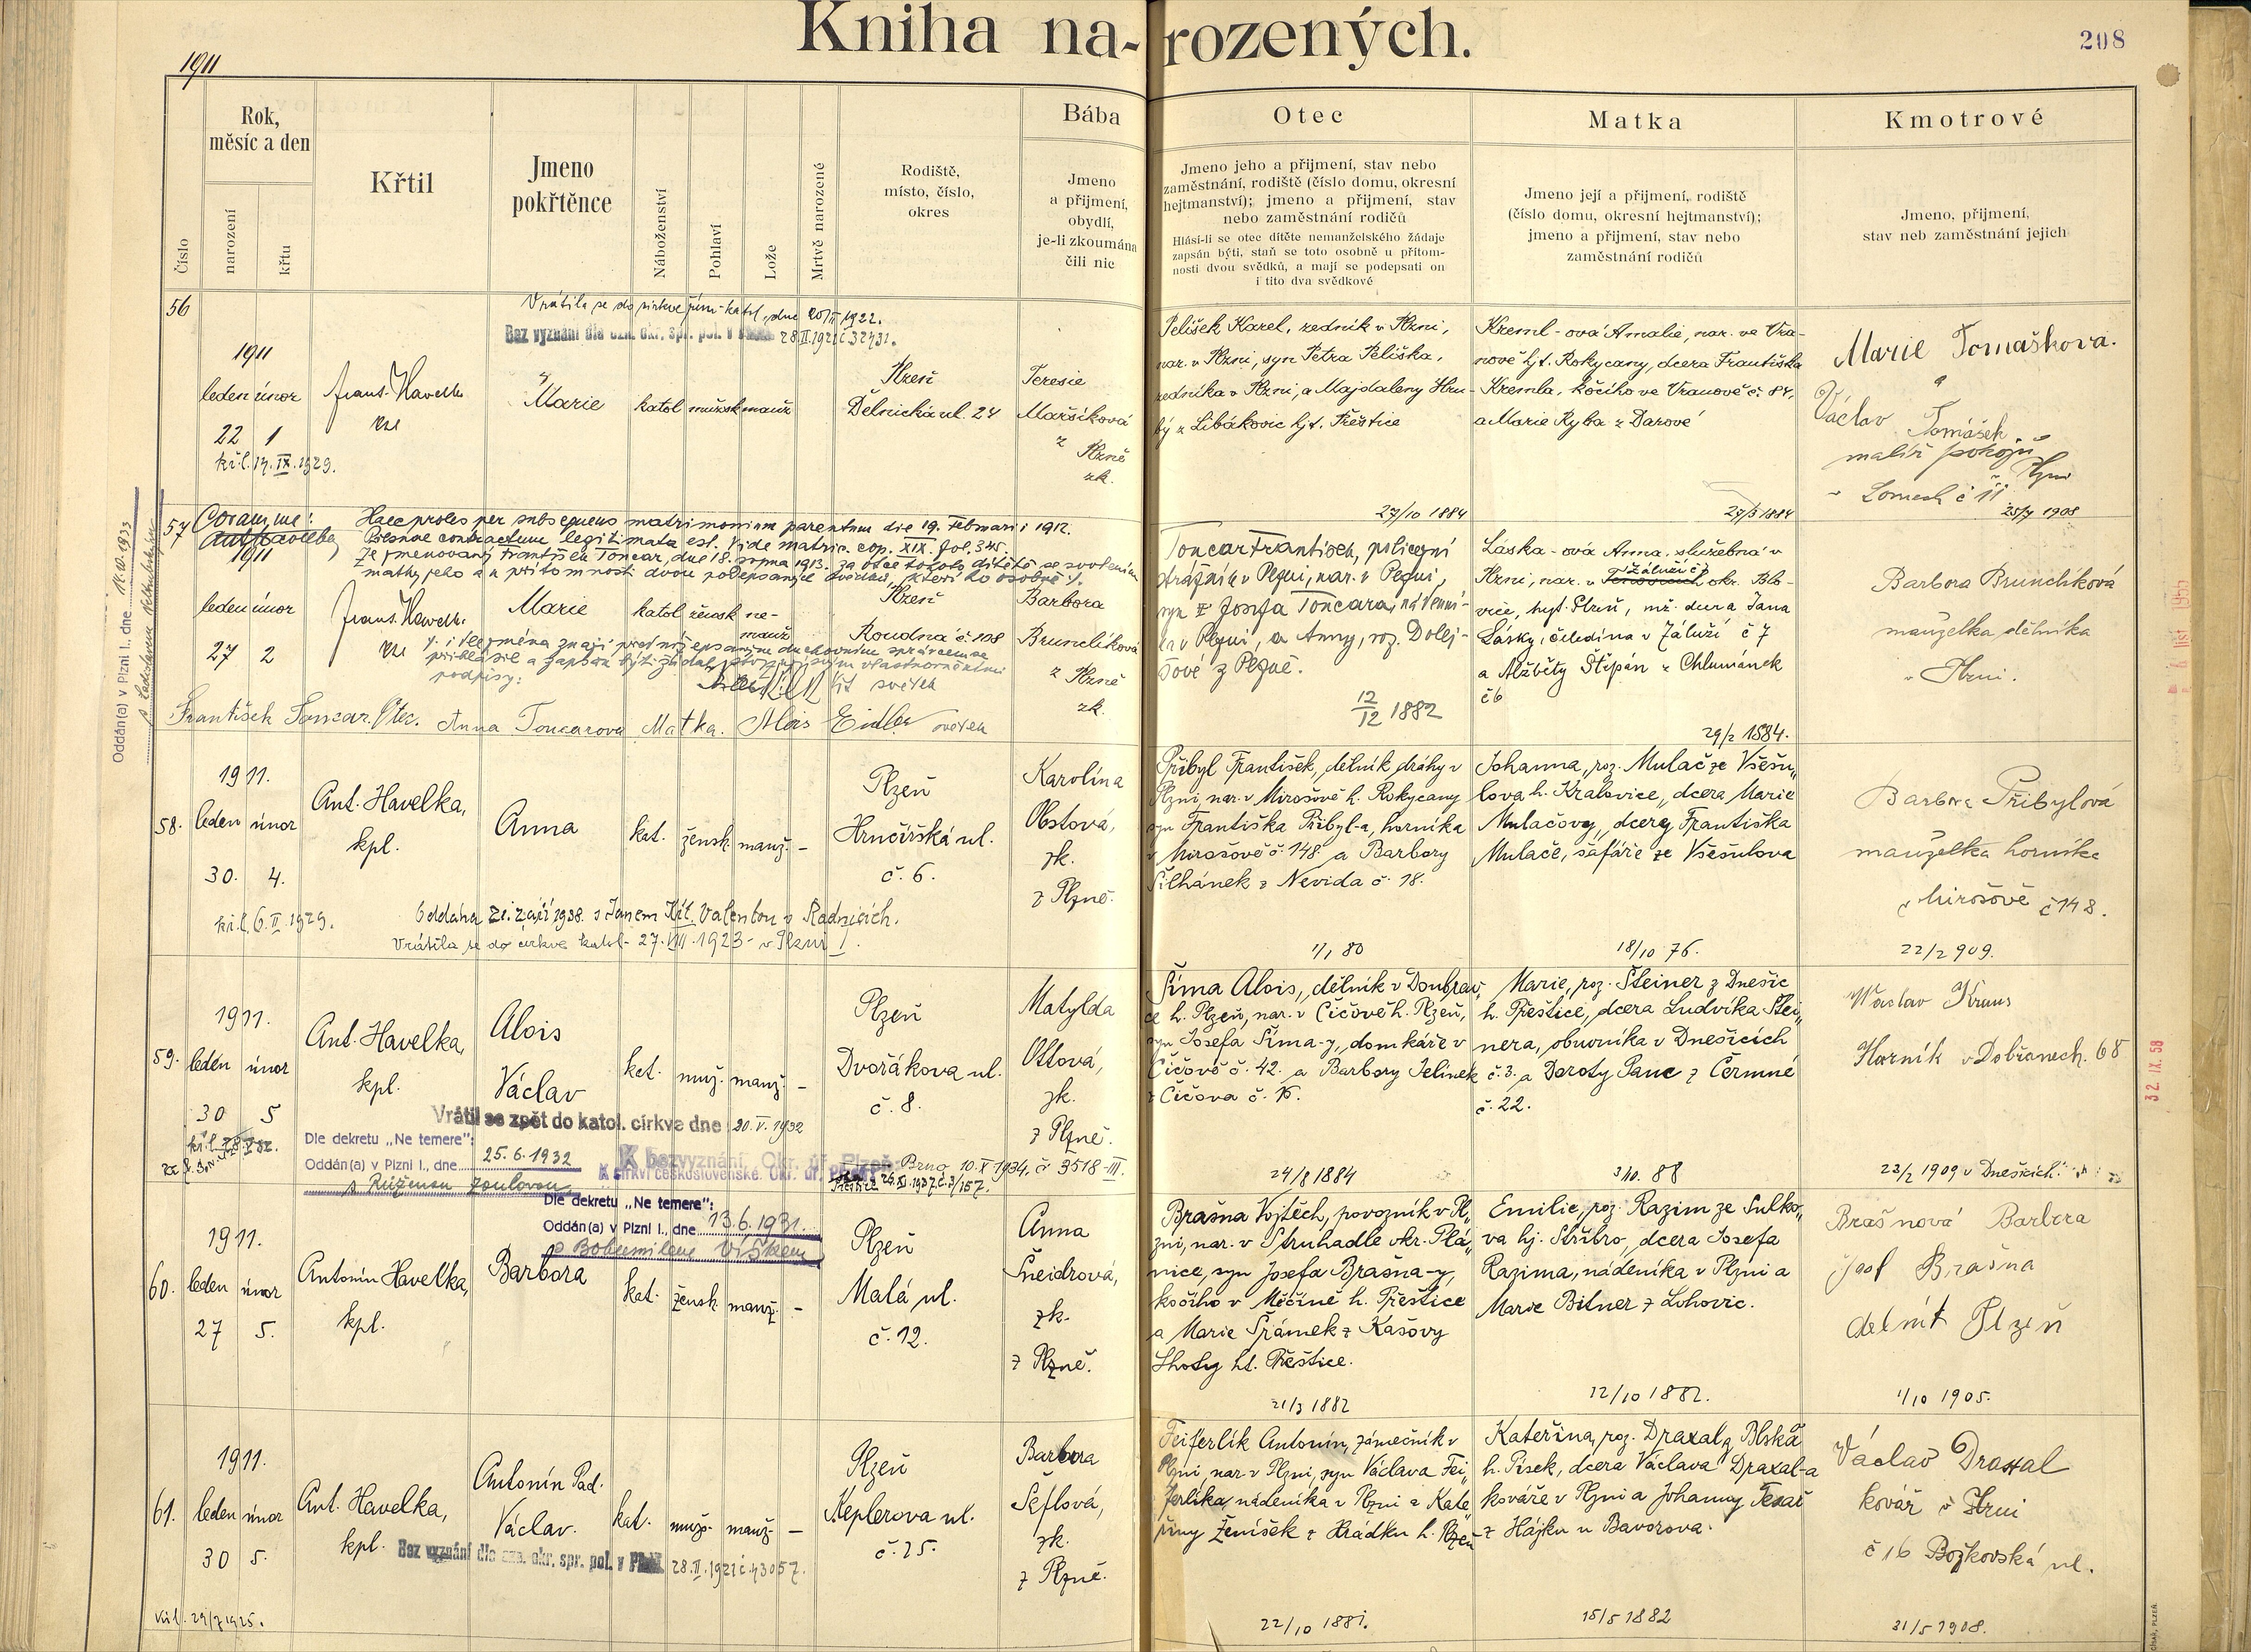 Kniha narozených.
208
1911
Číslo
Rok, měsíc a den
narození
křtu
Křtil
Jmeno pokřtěnce
Náboženství
Pohlaví
Lože
Mrtvě narozené
Rodiště,
místo, číslo,
okres
Bába
Jmeno
a přijmení,
obydlí,
je-li zkoumána
čili nic
Otec
Jmeno jeho a přijmení, stav nebo
zaměstnání, rodiště (číslo domu, okresní
hejtmanství); jmeno a přijmení, stav
nebo zaměstnání rodičů
Hlásí-li se otec dítěte nemanželského žádaje
zapsán býti, staň se toto osobně u přítom-
nosti dvou svědků, a mají se podepsati on
i tito dva svědkové
Matka
Jmeno její a přijmení, rodiště
(číslo domu, okresní hejtmanství);
jmeno a přijmení, stav nebo
zaměstnání rodičů
Kmotrové
Jmeno, přijmení,
stav neb zaměstnání jejich
56
Vrátila se do církve řím-katol. dne 20/II 1922.
Bez vyznání dle ozn. okr. spr. pol. v 28.II.1921 č 32431.
1911
leden únor
22 1
Frant. Havelka
Marie
katol mužsk manž
Plzeň
Dělnická ul. 24
Teresie
Maršíková
z Plzně
zk.
kř.l. 14.IX.1929.
Pelíšek Karel, zedník v Plzni,
nar. v Plzni, syn Petra Pelíška,
zedníka v Plzni, a Majdaleny Hru-
bý z Libákovic hjt. Přeštice
27/10 1884
Kreml-ová Amalie, nar. ve Vra-
nově hjt. Rokycany, dcera Františka
Kremla, kočího ve Vranově č. 84,
a Marie Ryba z Darové
27/5 1884
Marie Tomaškova.
a
Václav Tomášek
malíř pokojů
Lomech č 11
25/7 1908
57
Coram me:
Haec proles per subsequens matrimonium parentum die 19. Februarii 1912.
Plesnae contractum legitimata est. Vide matric. cop. XIX. fol. 345.
Že jmenovaný František Toncar, dne 18. srpna 1913. za otce tohoto dítěte se svolením
matky jeho a u přítomnosti dvou podepsaných svědků, kteří ho osobně
1911
leden únor
27 2
Frant. Havelka
Marie
katol žensk ne-
manž
Plzeň
Roudná č 108
Barbora
Brunclíková
z Plzně
zk.
i dle jména znají před níže psaným duchovním správcem se
přihlásil a zapsán býti žádal, stvrzují svými vlastnoručními
podpisy:
svědek
František Toncar Otec. Anna Toncarova Matka. Alois Eidler svědek
Oddán(a) v Plzni I. dne
Toncar František, policejní
strážník v Plzni, nar. v Plzni,
syn Josefa Toncara,
v Plzni, a Anny, roz. Dolej-
šové z Plzně.
12/12 1882
Láska-ová Anna, služebná v
Plzni, nar. v Záluží č 7 okr. Blo-
vice, hejt. Plzeň, mž. dcera Jana
Lásky, čeledína v Záluží č 7
a Alžběty Štěpán z Chlumánek
č 6
29/2 1884.
Barbora Brunclíková
manželka dělníka
v Plzni.
58.
1911.
leden únor
30. 4.
Ant. Havelka,
kpl.
Anna
kat. žensk. manž. -
Plzeň
Hrnčířská ul.
č. 6.
Karolína
Obstová,
zk.
z Plzně.
kř.l. 6.II.1929.
Oddána 21. září 1938. s Janem Valentou v Radnicích.
Vrátila se do církve katol. 27.VIII.1923 v Plzni I.
Přibyl František, dělník dráhy v
Plzni, nar. v Mirošově h. Rokycany
syn Františka Přibyl-a, horníka
v Mirošově č. 148 a Barbory
Šilhánek z Nevida č. 18.
1/1 80
Johanna, roz. Mulač ze Všesu„
lova h. Kralovice, dcera Marie
Mulačovy, dcery Františka
Mulače, šafáře ze Všesulova
18/10 76.
Barbora Přibylová
manželka horníka
v Mirošově č 148.
22/2 909.
59.
1911.
leden únor
30 5
Ant. Havelka,
kpl.
Alois
Václav
kat. muž. manž. -
Plzeň
Dvořákova ul.
č. 8.
Matylda
Ottová,
zk.
z Plzně.
Vrátil se zpět do katol. církve dne 20.V.1932
Dle dekretu „Ne temere":
Oddán(a) v Plzni I., dne 25.6.1932
s Růženou Zoulovou
X bezvyznání. Okr. úř. Plzeň Brno 10.X 1934. č 3518-III.
k církvi československé. Okr. úř.
Šíma Alois, dělník v Doubrav„
ce h. Plzeň, nar. v Čičově h. Plzeň,
syn Josefa Šíma-y, domkáře v
Čičově č. 42. a Barbory Jelínek
z Čičova č. 16.
24/8 1884
Marie, roz. Šteiner z Dnešic
h. Přeštice, dcera Ludvíka Štei„
nera, obuvníka v Dnešicích
č. 3. a Doroty Panc z Čermné
č. 22.
3/10. 88
Waclav Kraus
Horník v Dobřanech. 68
32. IX. 58
23/2 1909 v Dnešicích.
60.
1911.
leden únor
27 5.
Antonín Havelka,
kpl.
Dle dekretu „Ne temere":
Oddán(a) v Plzni I., dne 13.6.1931.
s Bohumilem Víškem
Barbora
kat. žensk. manž. -
Plzeň
Malá ul.
č. 12.
Anna
Šneidrová,
zk.
z Plzně.
Brašna Vojtěch, povozník v Pl„
zni, nar. v Struhadle okr. Plá„
nice, syn Josefa Brašna-y,
kočího v Měčíně h. Přeštice
a Marie Šrámek z Kašovy
Lhoty ht. Přeštice.
21/3 1882
Emilie, roz. Razim ze Sulko„
va hj. Stříbro, dcera Josefa
Razima, nádeníka v Plzni a
Marie Bitner z Lohovic.
12/10 1882.
Brašnová Barbora
Josf Brašna
delnik Plzeň
1/10 1905.
61.
1911.
leden únor
30 5.
Ant. Havelka,
kpl.
Antonín Pad.
Václav.
kat. mužs. manž. -
Plzeň
Keplerova ul.
č. 25.
Barbora
Šeflová,
zk.
z Plzně.
Bez vyznání dle ozn. okr. spr. pol. v Plzni 28.II.1921 č. 43057.
kř.l. 29/7 1925.
Feiferlík Antonín, zámečník v
Plzni, nar. v Plzni, syn Václava Fei„
ferlíka, nádeníka v Plzni a Kate„
řiny Ženíšek z Hrádku h. Plzeň
22/10 1881.
Kateřina, roz. Draxal z Blska
h. Písek, dcera Václava Draxal-a
kováře v Plzni a Johanny Tesař
z Hájku u Bavorova.
15/5 1882
Václav Draxal
kovář v Plzni
č 16 Božkovská ul.
31/5 1908.